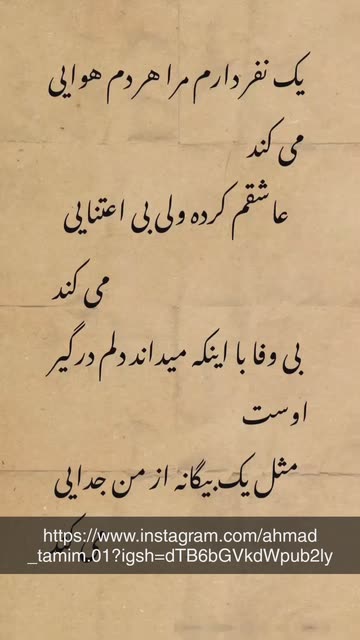 یک نفر دارم مرا هر دم هوایی
می کند
عاشقم کرده ولی بی اعتنایی
می کند
بی وفا با اینکه میداند دلم درگیر
اوست
مثل یک بیگانه از من جدایی
می کند
https://www.instagram.com/ahmad
_tamim.01?igsh=dTB6bGVkdWpub2ly